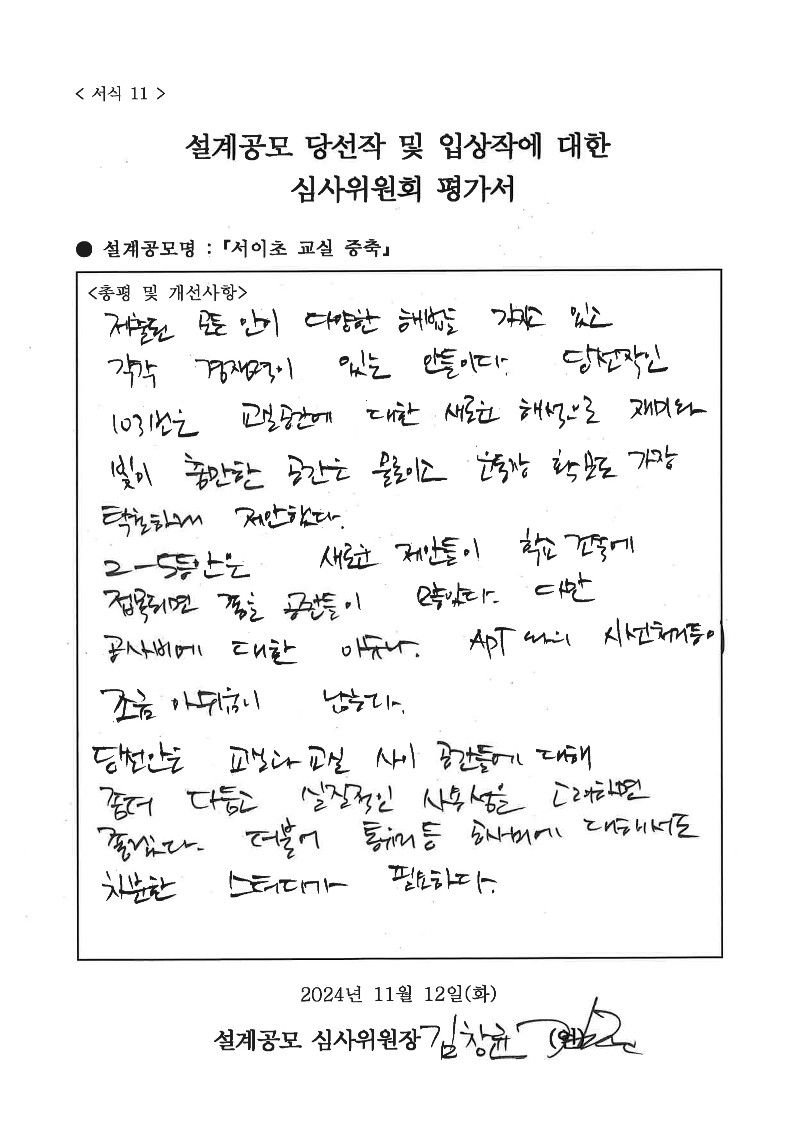 < 서식 11 >
설계공모 당선작 및 입상작에 대한
심사위원회 평가서
● 설계공모명 : 「서이초 교실 증축」
<총평 및 개선사항>
제출된 모든 안이 다양한 해법을 가지고 있고
각각 경쟁력이 있는 안들이다. 당선작인
1031번은 교실공간에 대한 새로운 해석으로 재미와
빛이 충만한 공간은 물론이고 운동장 확보도 가장
탁월하게 제안했다.
2-5등안은 새로운 제안들이 학교 건축에
접목되면 좋을 공간들이 많았다. 다만
공사비에 대한 이슈나. APT 와의 시선처리등이
조금 아쉬움이 남는다.
당선안은 교실과 교실 사이 공간들에 대해
좀더 다듬고 실질적인 사용성을 고려하면
좋겠다. 더불어 통유리등 공사비에 대해서도
차분한 스터디가 필요하다.
2024년 11월 12일(화)
설계공모 심사위원장 김창균 (인)